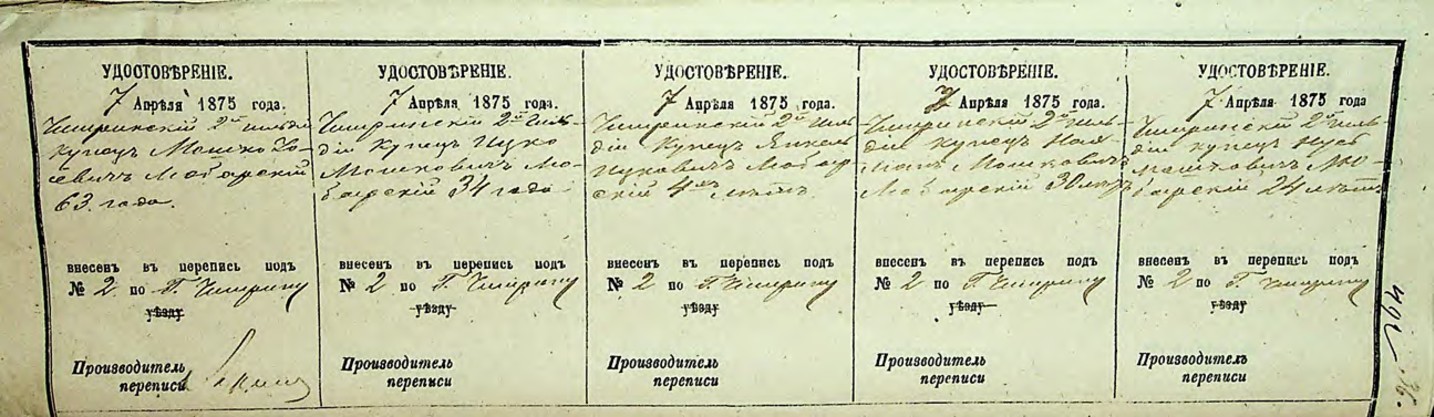 УДОСТОВѢРЕНІЕ.
7 Апрѣля 1875 года.
Чигринскій 2й гильдіи
купецъ Мошко Іо-
севичъ Могарскій
63. года.
внесенъ въ перепись подъ
№ 2 по Г. Чигрину
уѣзду
Производитель
переписи
УДОСТОВѢРЕНІЕ.
7 Апрѣля 1875 года.
Чигринскій 2й Гиль-
діи Купецъ Ицко
Мошковичъ Мо-
гарскій 34 года
внесенъ въ перепись подъ
№ 2 по Г. Чигрину
уѣзду
Производитель
переписи
УДОСТОВѢРЕНІЕ.
7 Апрѣля 1875 года.
Чигринскій 2й Гиль-
діи Купецъ Янкель
Ицковичъ Могар-
скій 4 лѣтъ
внесенъ въ перепись подъ
№ 2 по Г. Чигрину
уѣзду
Производитель
переписи
УДОСТОВѢРЕНІЕ.
7 Апрѣля 1875 года.
Чигринскій 2й гиль-
діи купецъ
Мошковичъ
Могарскій 30 лѣтъ
внесенъ въ перепись подъ
№ 2 по Г. Чигрину
уѣзду
Производитель
переписи
УДОСТОВѢРЕНІЕ.
7 Апрѣля 1875 года
Чигринскій 2й гиль-
діи купецъ
Мошковичъ Мо-
гарскій 24 лѣтъ
внесенъ въ перепись подъ
№ 2 по Г. Чигрину
уѣзду
Производитель
переписи